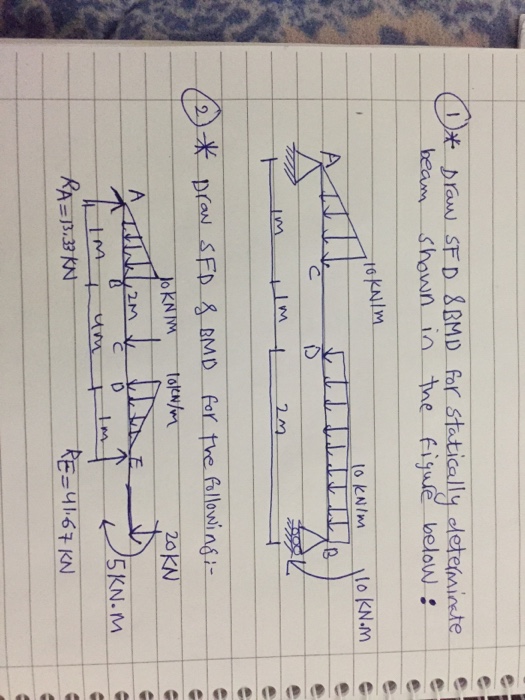 ① * Draw SFD & BMD for statically determinate
beam shown in the figure below :
10 KN/m
10 KN/m
10 KN.M
A
C
D
B
1M
1M
2M
② * Draw SFD & BMD for the following :-
10KN/M
10KN/M
20KN
A
B
2M
C
D
E
5 KN.M
1M
4M
1M
RA = 13.33 KN
RE = 41.67 KN